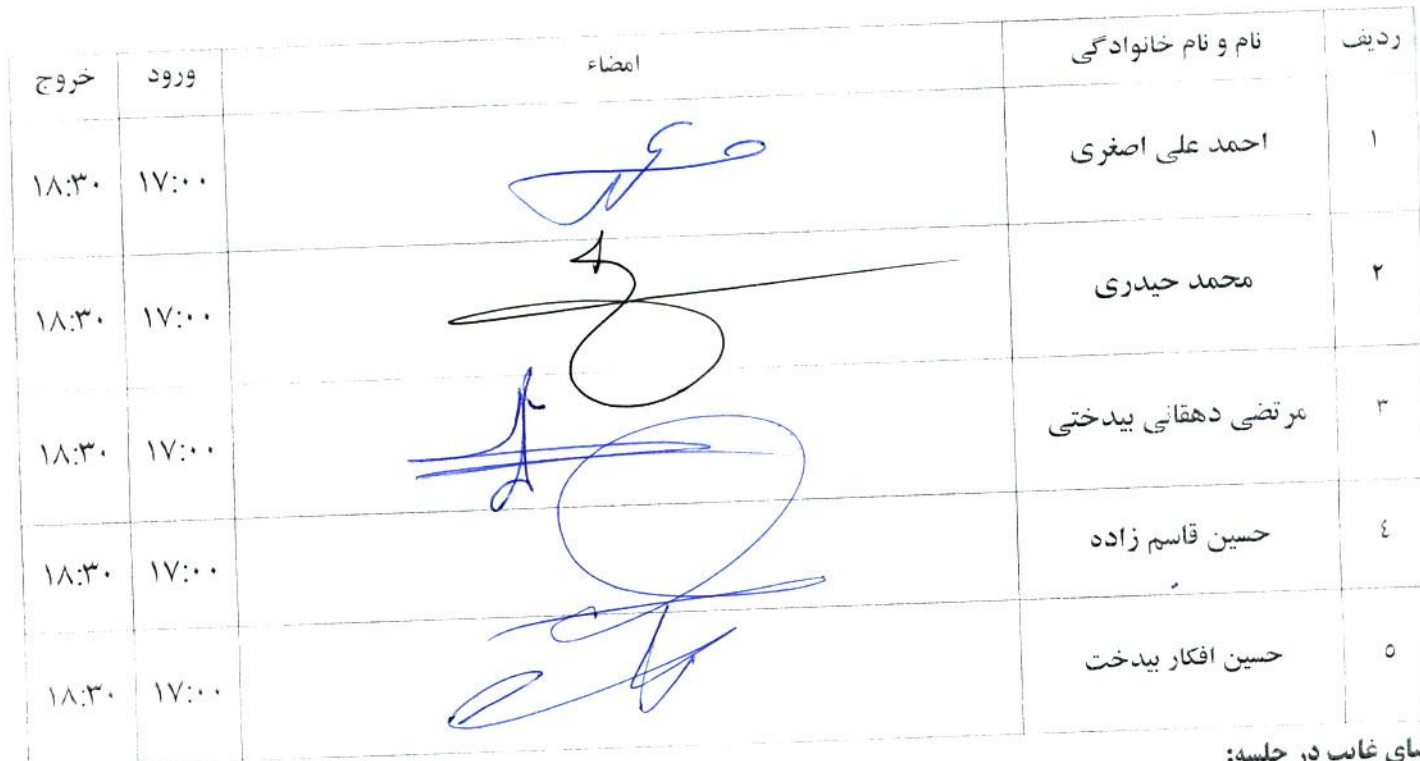 ردیف نام و نام خانوادگی امضاء ورود خروج
۱ احمد علی اصغری ۱۷:۰۰ ۱۸:۳۰
۲ محمد حیدری ۱۷:۰۰ ۱۸:۳۰
۳ مرتضی دهقانی بیدختی ۱۷:۰۰ ۱۸:۳۰
٤ حسین قاسم زاده ۱۷:۰۰ ۱۸:۳۰
٥ حسین افکار بیدخت ۱۷:۰۰ ۱۸:۳۰
غایب در جلسه: